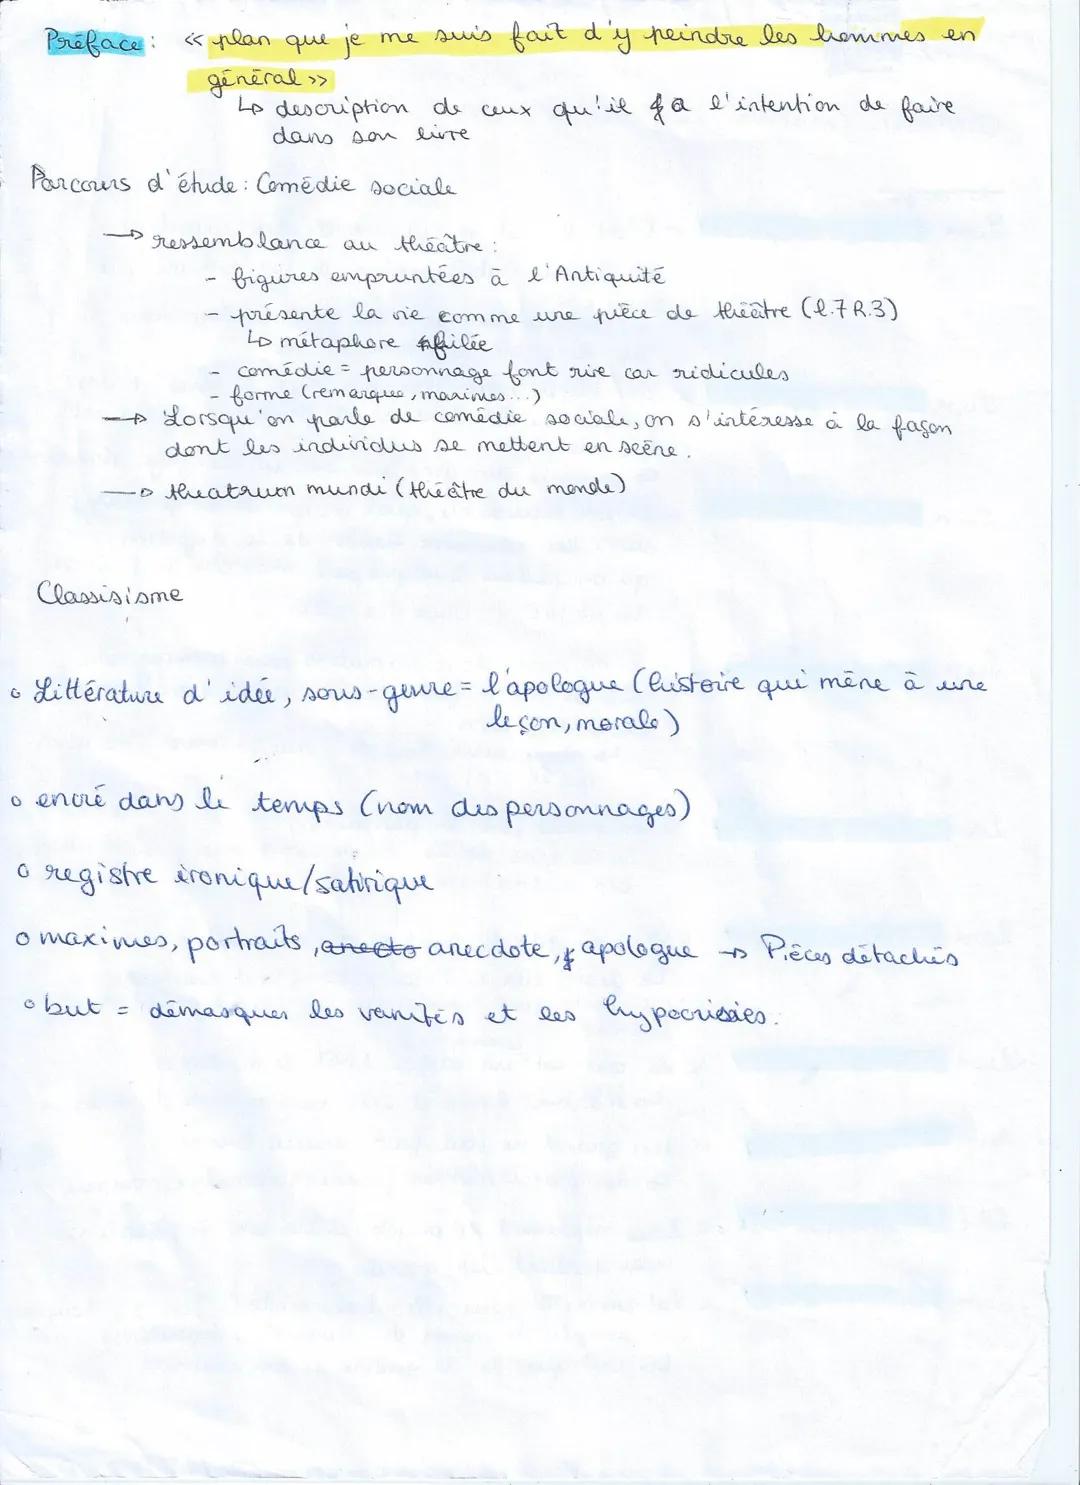 Préface : « plan que je me suis fait d'y peindre les hommes en
général »
↳ description de ceux qu'il a l'intention de faire
dans son livre
Parcours d'étude : Comédie sociale
→ ressemblance au théâtre :
- figures empruntées à l'Antiquité
- présente la vie comme une pièce de théâtre (l.7 R.3)
↳ métaphore filée
- comédie = personnage font rire car ridicules
- forme (remarques, maximes...)
→ Lorsqu'on parle de comédie sociale, on s'intéresse à la façon
dont les individus se mettent en scène.
→ theatrum mundi (théâtre du monde)
Classisisme
o Littérature d'idée, sous-genre = l'apologue (histoire qui mène à une
leçon, morale)
o encré dans le temps (nom des personnages)
o registre ironique/satirique
o maximes, portraits, anecto anecdote, apologue → Pièces détachés
o but = démasquer les vanités et les hypocrisies.